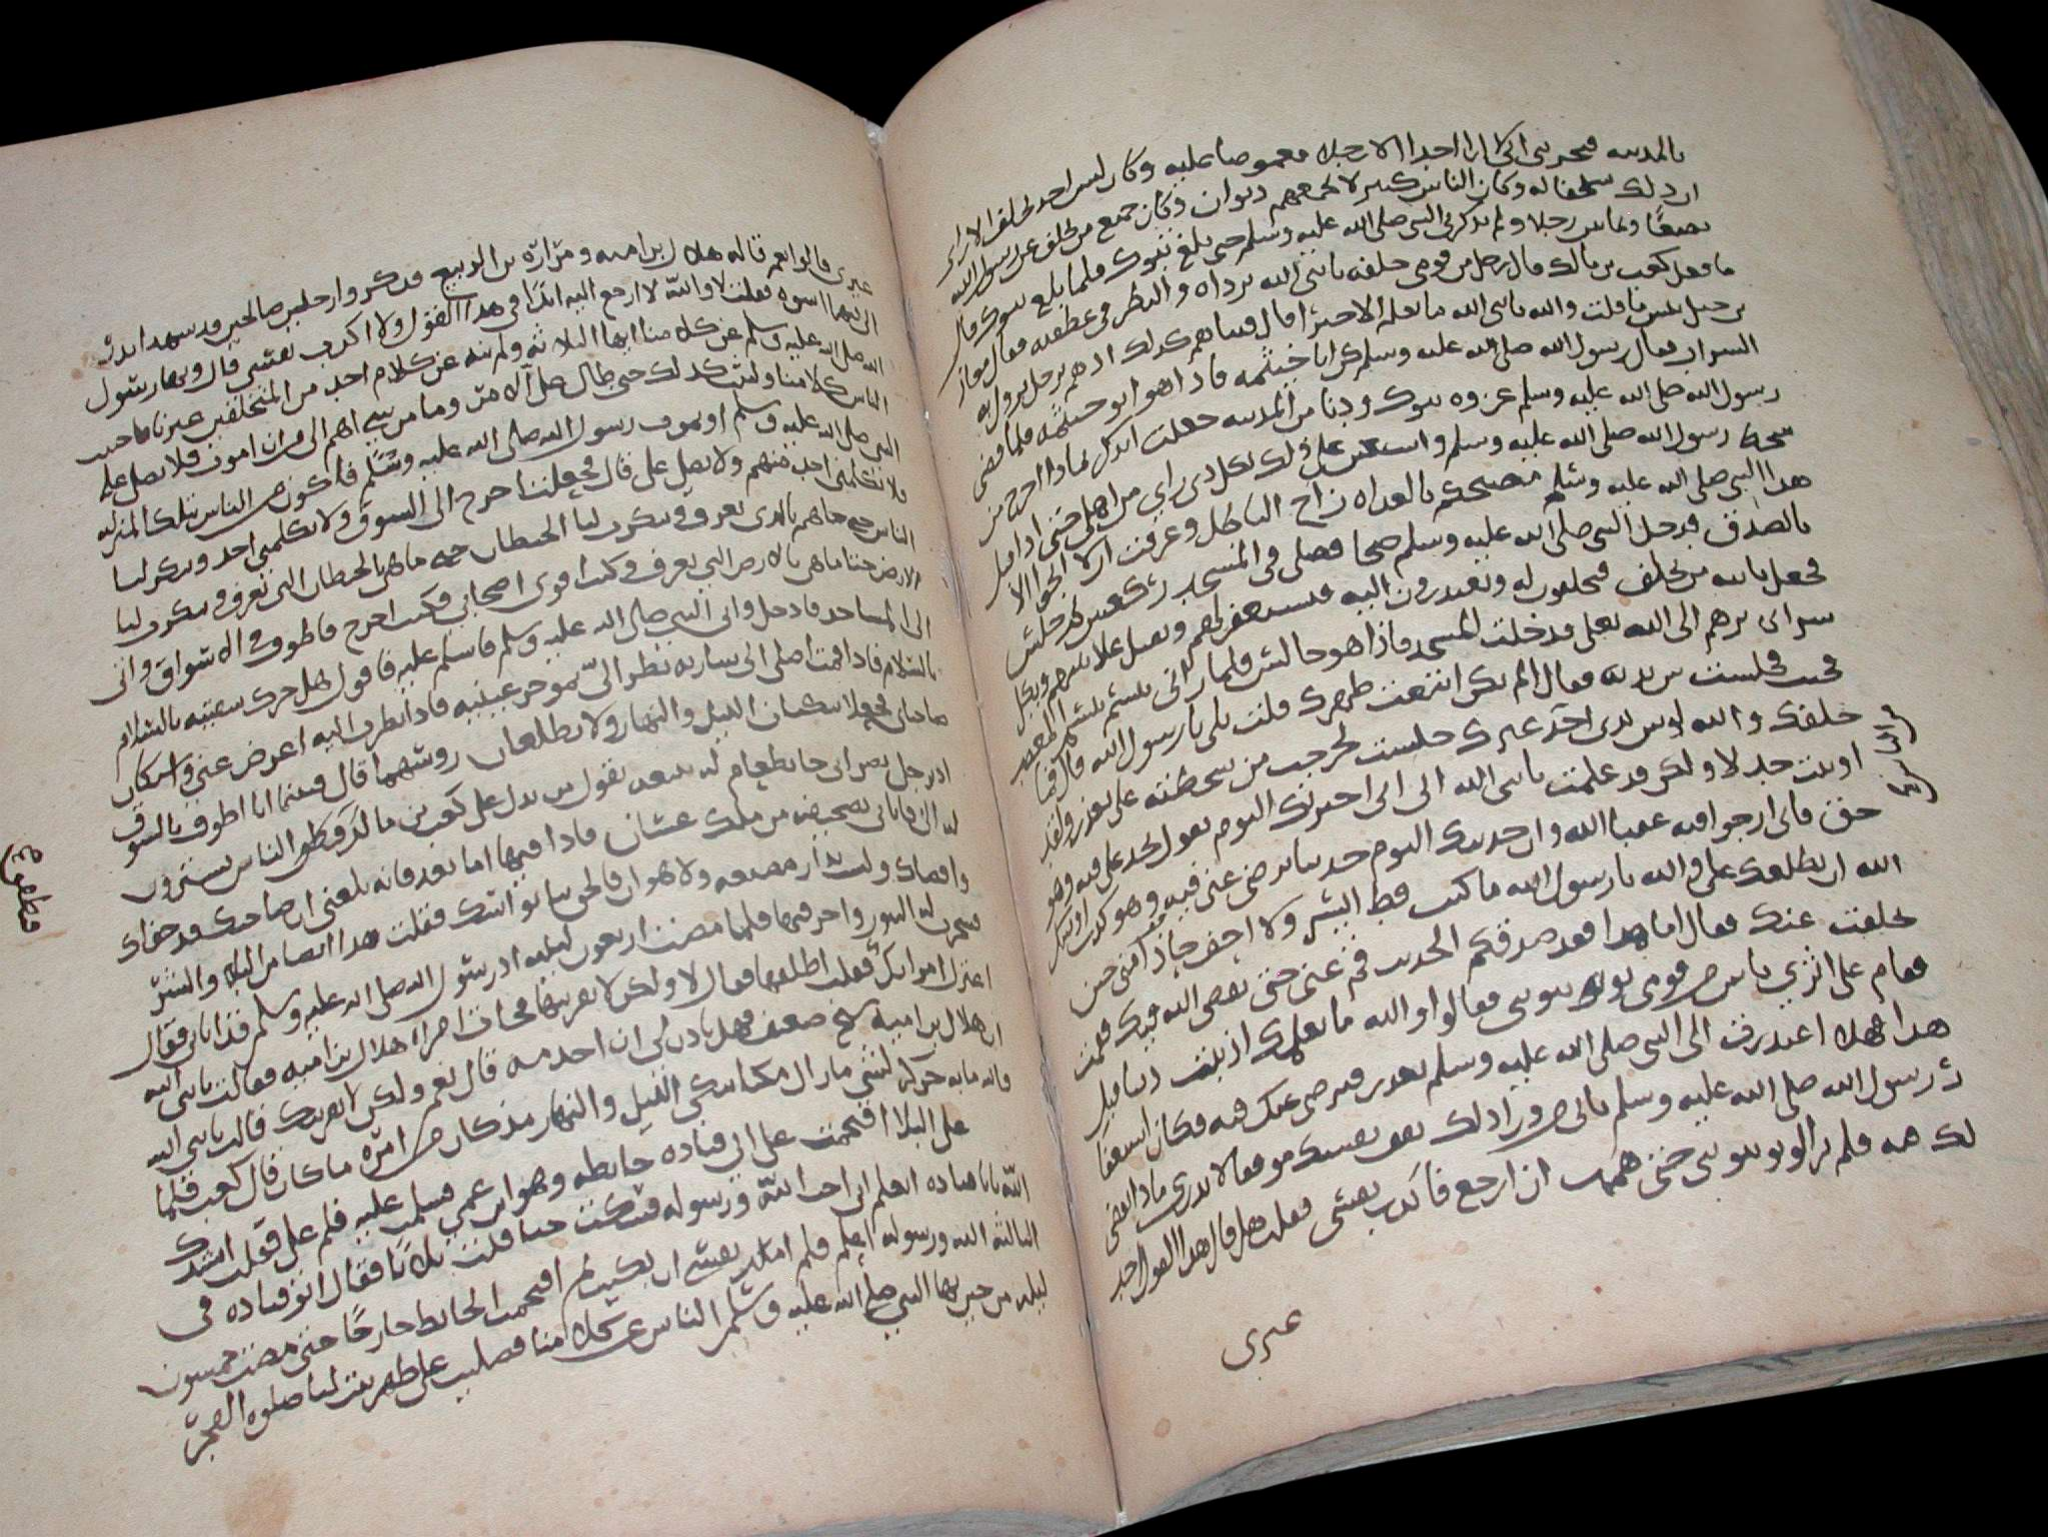 بالمدينه فيحزنني اني لا ارا احدا الا رجلا مغموصا عليه وكان ليس احد تخلف الا راى
ان ذلك سيخفا له وكان الناس كثير لا يجمعهم ديوان وكان جميع من تخلف عن رسول الله
بضعًا وثمانين رجلا ولم يذكرني النبي صلى الله عليه وسلم حتى بلغ تبوك فلما بلغ تبوك قال
ما فعل كعب بن مالك قال رجل من قومي خلفه يا نبي الله برداه والنظر في عطفيه فقال معاذ
بن جبل بئس ما قلت والله يا نبي الله ما نعلم الا خيرًا قال فبينا هم كذلك اذ هم برجل يزول به
السراب فقال رسول الله صلى الله عليه وسلم كن ابا خيثمه فاذا هو ابو خيثمه فلما قضى
رسول الله صلى الله عليه وسلم غزوه تبوك ودنا من المدينه جعلت اتذكر بماذا اخرج من
سخط رسول الله صلى الله عليه وسلم واستعين على ذلك بكل ذي راي من اهلي حتى اذا قيل
هذا النبي صلى الله عليه وسلم مصبحكم بالغداه زاح الباطل وعرفت ان لا انجوا الا
بالصدق فدخل النبي صلى الله عليه وسلم ضحا فصلى في المسجد ركعتين ثم جلس
فجعل ياتيه من تخلف فيحلفون له ويعتذرون اليه فيستغفر لهم ويقبل علانيتهم ويكل
سرايرهم الى الله تعلى فدخلت المسجد فاذا هو جالس فلما راني تبسم تبسم المغضب
فجيت فجلست بين يديه فقال الم تكن ابتعت ظهرك قلت بلى يا رسول الله قال فما
خلفك والله لو بين يدى احد غيرك جلست لخرجت من سخطته على بعذر ولقد
اوتيت جدلا ولكن قد علمت يا نبي الله اني ان اخبرتك اليوم بقول تجد على فيه وهو
حق فاني ارجوا فيه عقبا الله وان حدثتك اليوم حديثا ترضى عني فيه وهو كذب اوشك
الله ان يطلعك علي والله يا رسول الله ما كنت قط ايسر ولا اخف حاذا مني حين
تخلفت عنك فقال اما هذا فقد صدقكم الحديث قم عني حتى يقضي الله فيك فقمت
فقام على اثري ناس من قومي يونبونني فقالوا والله ما نعلمك اذنبت ذنبا قبل
هذا فهلا اعتذرت الى النبي صلى الله عليه وسلم بعذر فيرضى عنك فيه فكان استغفا
ر رسول الله صلى الله عليه وسلم ياتي من ورا ذلك ولم تقف نفسك موقفا لا تدري ماذا يقضى
لك فيه فلم يزالو يونبونني حتى هممت ان ارجع فاكذب نفسي فقلت هل قال هذا القول احد
غيري
غيري قالوا نعم قاله هلال بن اميه ومرّارّه بن الربيع فذكروا رجلين صالحين قد شهدا بدرًا
الى فيهما اسوه فقلت لا والله لا ارجع اليه ابدًا في هذا القول ولا اكذب نفسي قال ونهى رسول
الله صلى الله عليه وسلم عن كلامنا ايها الثلاثه ولم ينه عن كلام احد من المتخلفين غيرنا فاجتنب
الناس كلامنا ولبثت كذلك حتى طال علي الامر وما من شي اهم الى من ان اموت فلا يصلى علي
النبي صلى الله عليه وسلم او يموت رسول الله صلى الله عليه وسلم فاكون من الناس بتلك المنزله
فلا يكلمني احد منهم ولا يصلى على قال فجعلت اخرج الى السوق ولا يكلمني احد وتنكر لنا
الناس حتى ما هم بالذي نعرف وتنكرت لنا الحيطان حتى ما هي بالحيطان التي نعرف وتنكرت لنا
الارض حتى ما هي بالارض التي نعرف وكنت اقوى اصحابي فكنت اخرج فاطوف في الاسواق واتى
الى المساجد فادخل واتى النبي صلى الله عليه وسلم فاسلم عليه فاقول هل حرك شفتيه بالسلام
بالسلام فاذا قمت اصلى الى ساريه نظر الىّ بموخر عينيه فاذا نظرت اليه اعرض عنى واستكان
صاحباي فجعلا يبكيان الليل والنهار ولا يطلعان روسهما قال فبينما انا اطوف بالسوق
اذ رجل نصراني جا بطعام له يبيعه يقول من يدل على كعب بن مالك فطفق الناس يشيرون
له الى فاتاني بصحيفه من ملك غسان فاذا فيها اما بعد فانه بلغني ان صاحبك قد جفاك
واقصاك ولست بدار مضيعه ولا هوان فالحق بنا نواسك فقلت هذا ايضا من البلا والشرّ
فسجرت له التنور واحرقتها فلما مضت اربعون ليله اذ رسول الله صلى الله عليه وسلم قد اتاني فقال
اعتزل امراتك فقلت اطلقها فقال لا ولكن لا تقربنها فجات امراه هلال بن اميه فقالت يا نبي الله
ان هلال بن اميه شيخ ضعيف فهل تاذن لي ان اخدمه قال نعم ولكن لا يقربنك قالت يا نبي الله
والله ما به حركه لشي ما زال مكبا يبكي الليل والنهار مذ كان من امره ما كان قال كعب فلما
طال علي البلا اقتحمت على ابي قتاده حايطه وهو ابن عمي فسلمت عليه فلم يرد على فقلت انشدك
الله يابا قتاده اتعلم اني احب الله ورسوله فسكت حتى قلت ثلاثا فقال ابو قتاده في
الثالثه الله ورسوله اعلم فلم املك نفسي ان بكيت ثم اقتحمت الحايط خارجًا حتى مضت خمسون
ليله من حين نهى النبي صلى الله عليه وسلم الناس عن كلامنا فصليت على ظهر بيت لنا صلوه الفجر